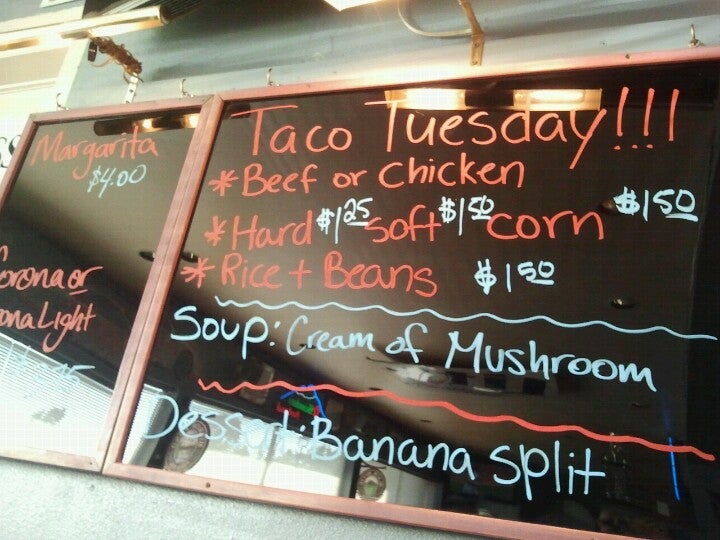 Margarita
$4.00
orona or
ona Light
Taco Tuesday!!!
*Beef or Chicken
*Hard $1.25 Soft $1.50 corn $1.50
*Rice + Beans $1.50
Soup: Cream of Mushroom
Dessert: Banana Split